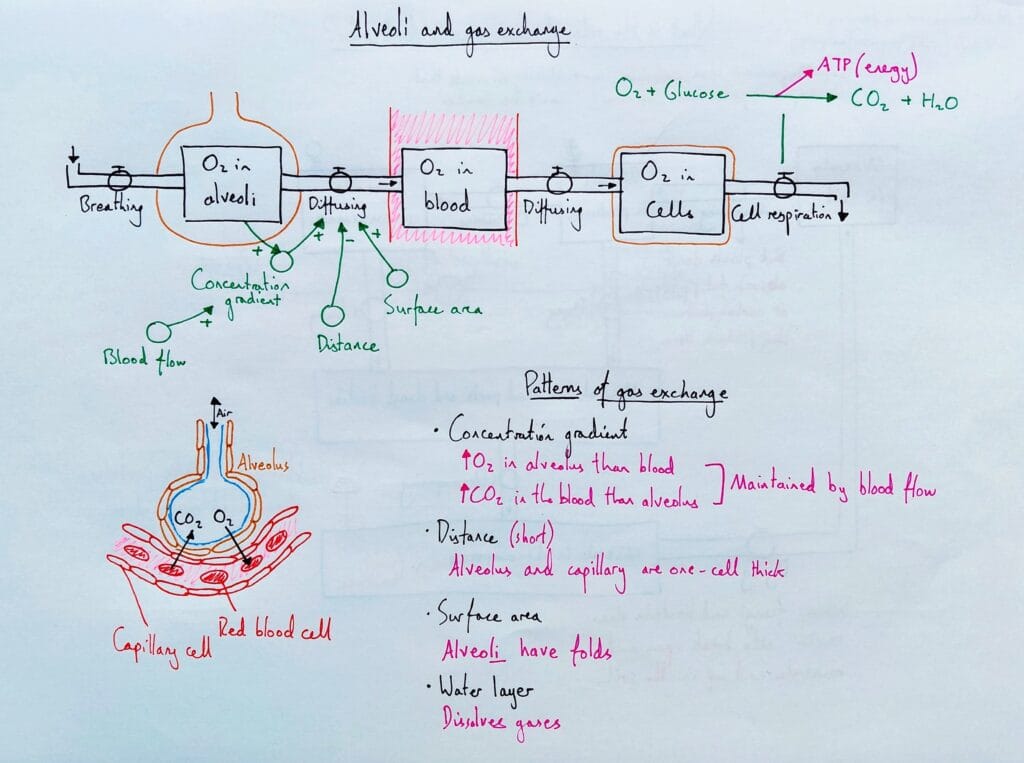 Alveoli and gas exchange
ATP (energy)
O₂ + Glucose
CO₂ + H₂O
O₂ in
alveoli
O₂ in
blood
O₂ in
Cells
Breathing
Diffusing
Diffusing
Cell respiration
+
+
-
+
Concentration
gradient
Surface area
+
Distance
Blood flow
Air
Alveolus
CO₂ O₂
Red blood cell
Capillary cell
Patterns of gas exchange
· Concentration gradient
↑O₂ in alveolus than blood
↑CO₂ in the blood than alveolus
Maintained by blood flow
· Distance (short)
Alveolus and capillary are one-cell thick
· Surface area
Alveoli have folds
· Water layer
Dissolves gases